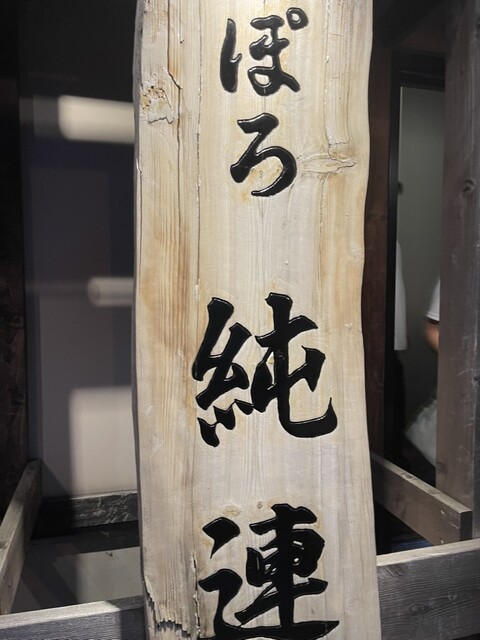 ぽろ 純連